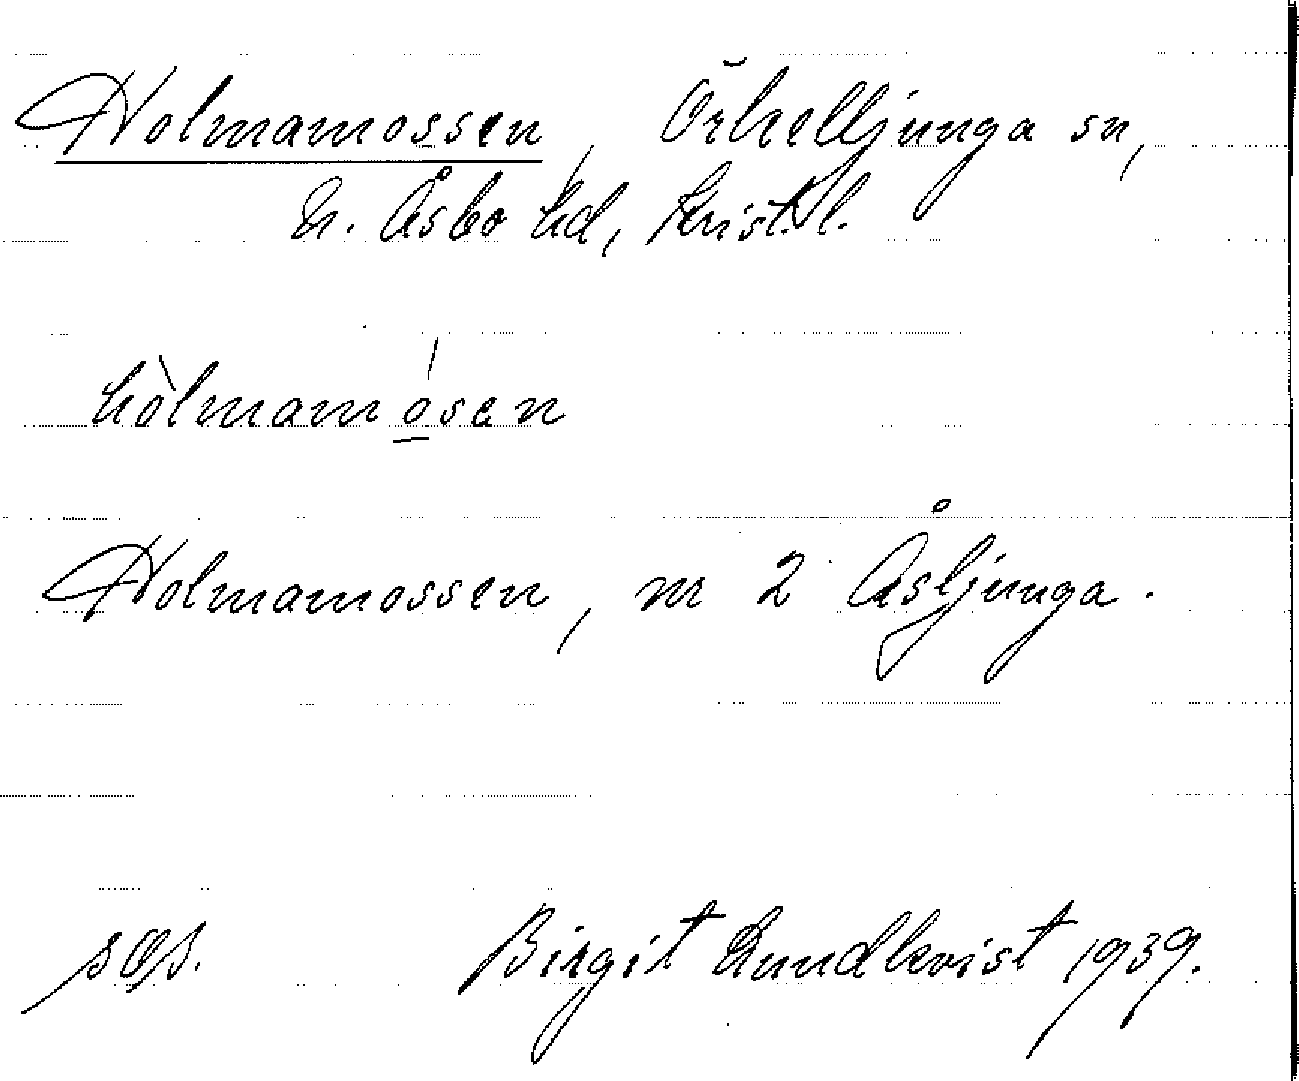 Holmamossen, Örkelljunga sn,
N. Åsbo hd, Krist. l.
hòlmamósen
Holmamossen, nr 2 Åsljunga.
Birgit Lundkvist 1939.